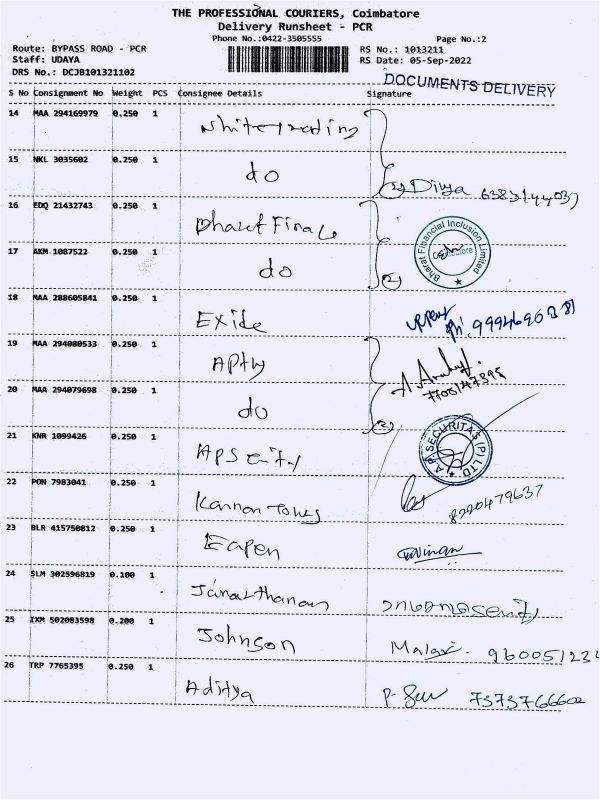 THE PROFESSIONAL COURIERS, Coimbatore
Delivery Runsheet - PCR
Phone No.:0422-3505555
Page No.:2
Route: BYPASS ROAD - PCR
RS No.: 1013211
Staff: UDAYA
RS Date: 05-Sep-2022
DRS No.: DCJB101321102
DOCUMENTS DELIVERY
S No Consignment No Weight PCS Consignee Details Signature
14 MAA 294169979 0.250 1
15 NKL 3035602 0.250 1 do
(2) Divya
16 EDQ 21432743 0.250 1
Bharat Financial Inclusion Limited
Coimbatore
17 AKM 1087522 0.250 1 do
(2)
18 MAA 288605841 0.250 1 Exide
19 MAA 294080533 0.250 1
20 MAA 294079698 0.250 1 do
21 KNR 1099426 0.250 1
A.P. SECURITAS (P) LTD
22 PON 7983041 0.250 1 Kannan
8220479637
23 BLR 415750812 0.250 1 Eapen
24 SLM 302596819 0.100 1 Janarthanan
25 IXM 502083598 0.200 1 Johnson
960051234
26 TRP 7765395 0.250 1 Aditya
7373766602